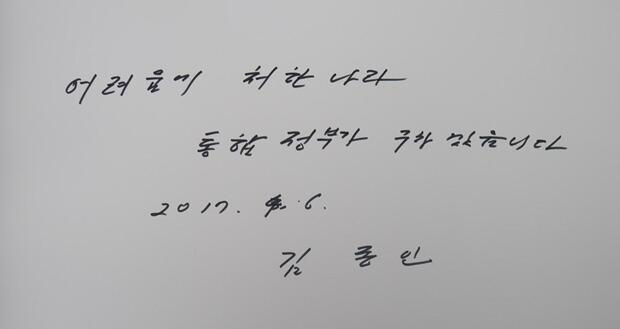 어려움에 처한 나라
통합 정부가 구하 겠읍니다
2017. 4. 6.
김 종 인